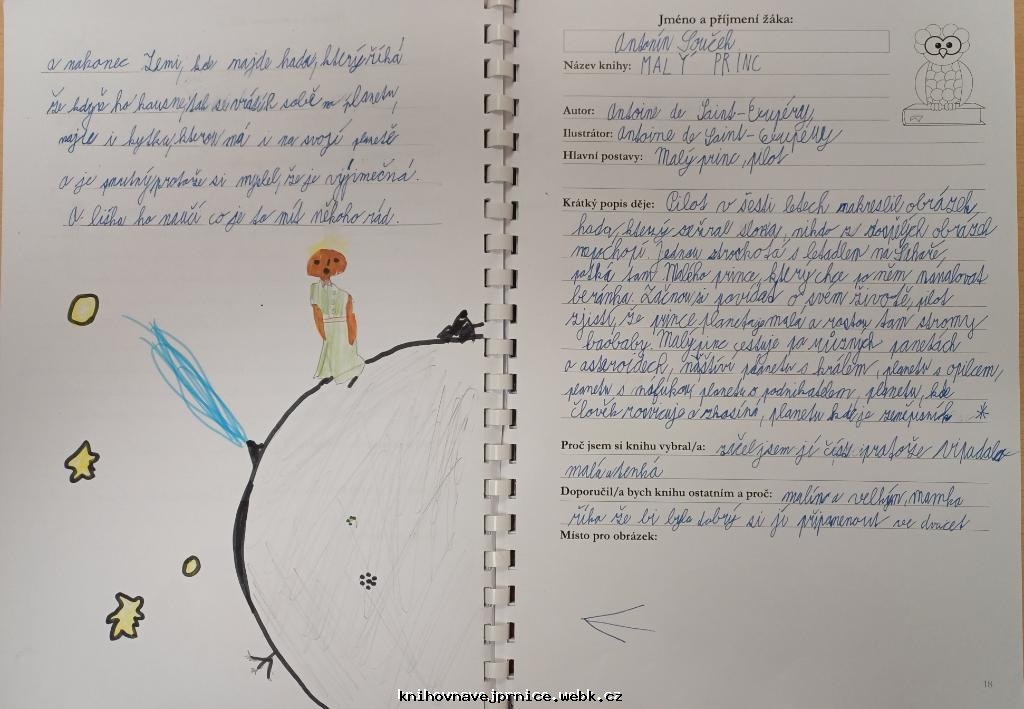 a nakonec Zemi, kde najde hada, který říká
že když ho kousne, tak se vrátí k sobě na planetu,
najde i kytku, kterou má i na svojí planetě
a je smutný, protože si myslel, že je vyjímečná.
A liška ho naučí co je to mít někoho rád.
Jméno a příjmení žáka:
Antonín Souček
Název knihy: MALÝ PRINC
Autor: Antoine de Saint-Exupéry
Ilustrátor: Antoine de Saint-Exupéry
Hlavní postavy: Malý princ, pilot
Krátký popis děje: Pilot v šesti letech nakreslil obrázek
hada, který sežral slona, nikdo z dospělých obrázek
nepochopí. Jednou ztroskotá s letadlem na Sahaře,
potká tam Malého prince, který chce po něm namalovat
beránka. Začnou si povídat o svém životě, pilot
zjistí, že prince planeta je malá a rostou tam stromy
baobaby. Malý princ cestuje po různých panetách
a asteroidech, navštíví planetu s králem, planetu s opilcem,
planetu s náfukou, planetu s podnikatelem, planetu, kde
člověk rozsvicuje a zhasíná, planetu kde je zeměpisník *
Proč jsem si knihu vybral/a: začel jsem jí číst protože vipadala
malá a tenká
Doporučil/a bych knihu ostatním a proč: malím a velkým, mamka
říka že bi bylo dobrý si jí připomenout ve dvacet
Místo pro obrázek:
18
knihovnavejprnice.webk.cz